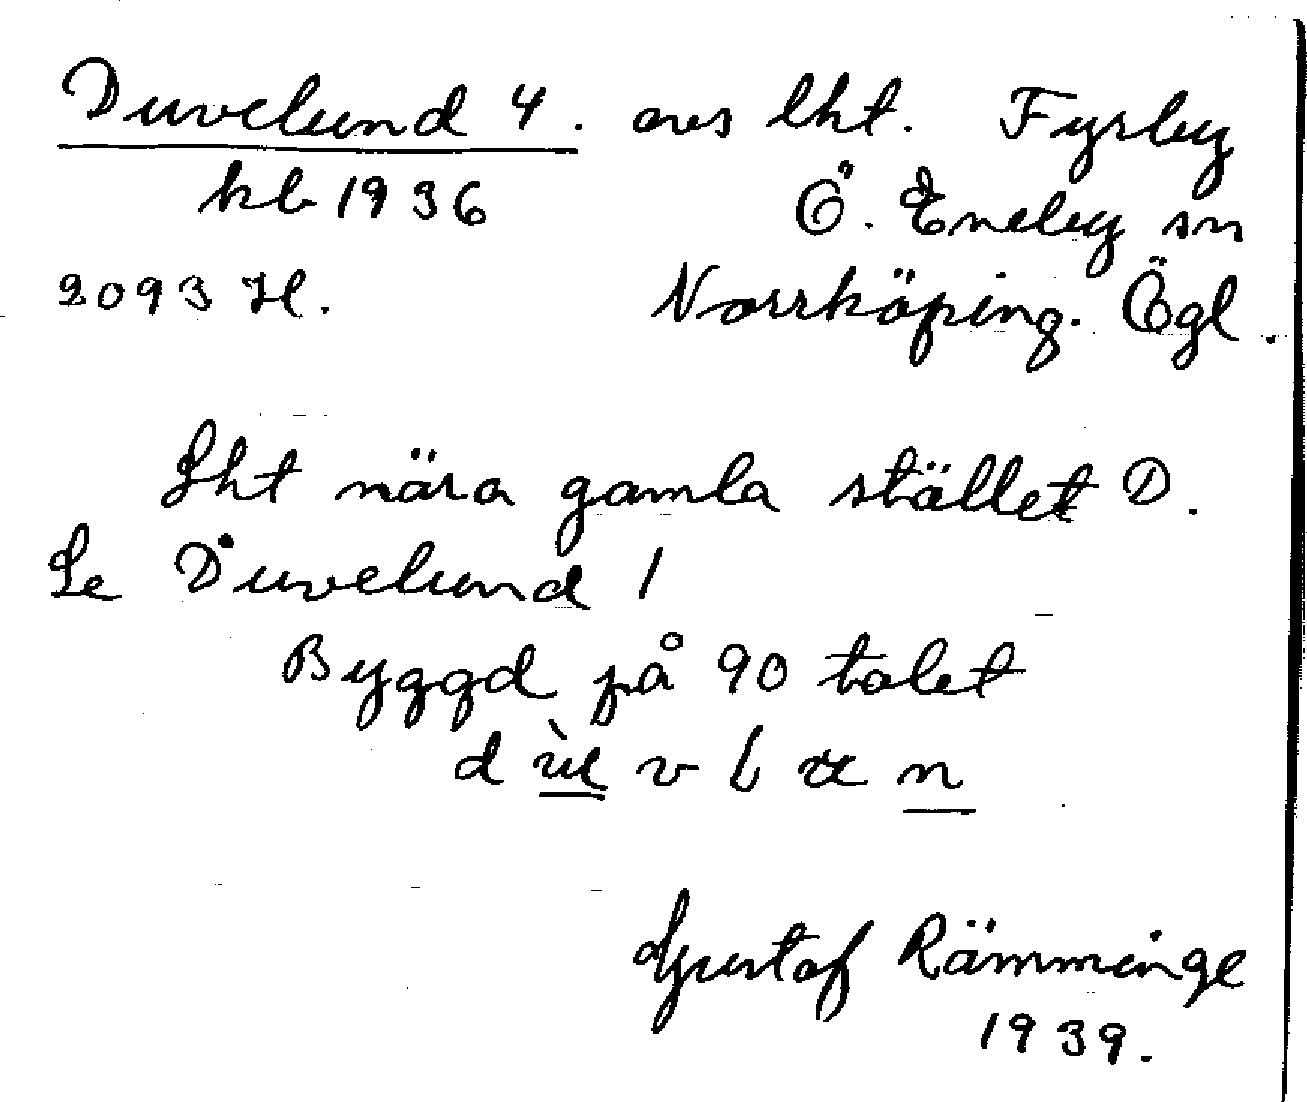 Duvelund 4. avs lht. Fyrby
kb 1936 Ö. Eneby sn
2093 H. Norrköping. Ögl.
Lht nära gamla stället D.
Se Duvelund 1
Byggd på 90 talet
d ùu v l u n
Gustaf Rämminge
1939.